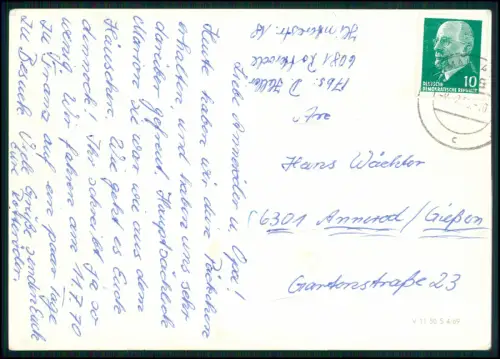 Liebe Anneröder u. Opa!
Heute haben wir dein Päckchen
erhalten und haben uns sehr
darüber gefreut. Hauptsächlich
Marion. Sie war wie aus dem
Häuschen. Wie geht es Euch
dennoch? Ihr schreibt ja so
wenig. Wir fahren am 11.7.70
zu Franz auf ein paar Tage
zu Besuch. Viele Grüße senden Euch
Eure
Abs. D.
6081
Hintere Str. 18
DEUTSCHE
DEMOKRATISCHE REPUBLIK
10
c
Hans Wächter
6301 Annerod/Gießen
Gartenstraße 23
V 11 50 5 4 69